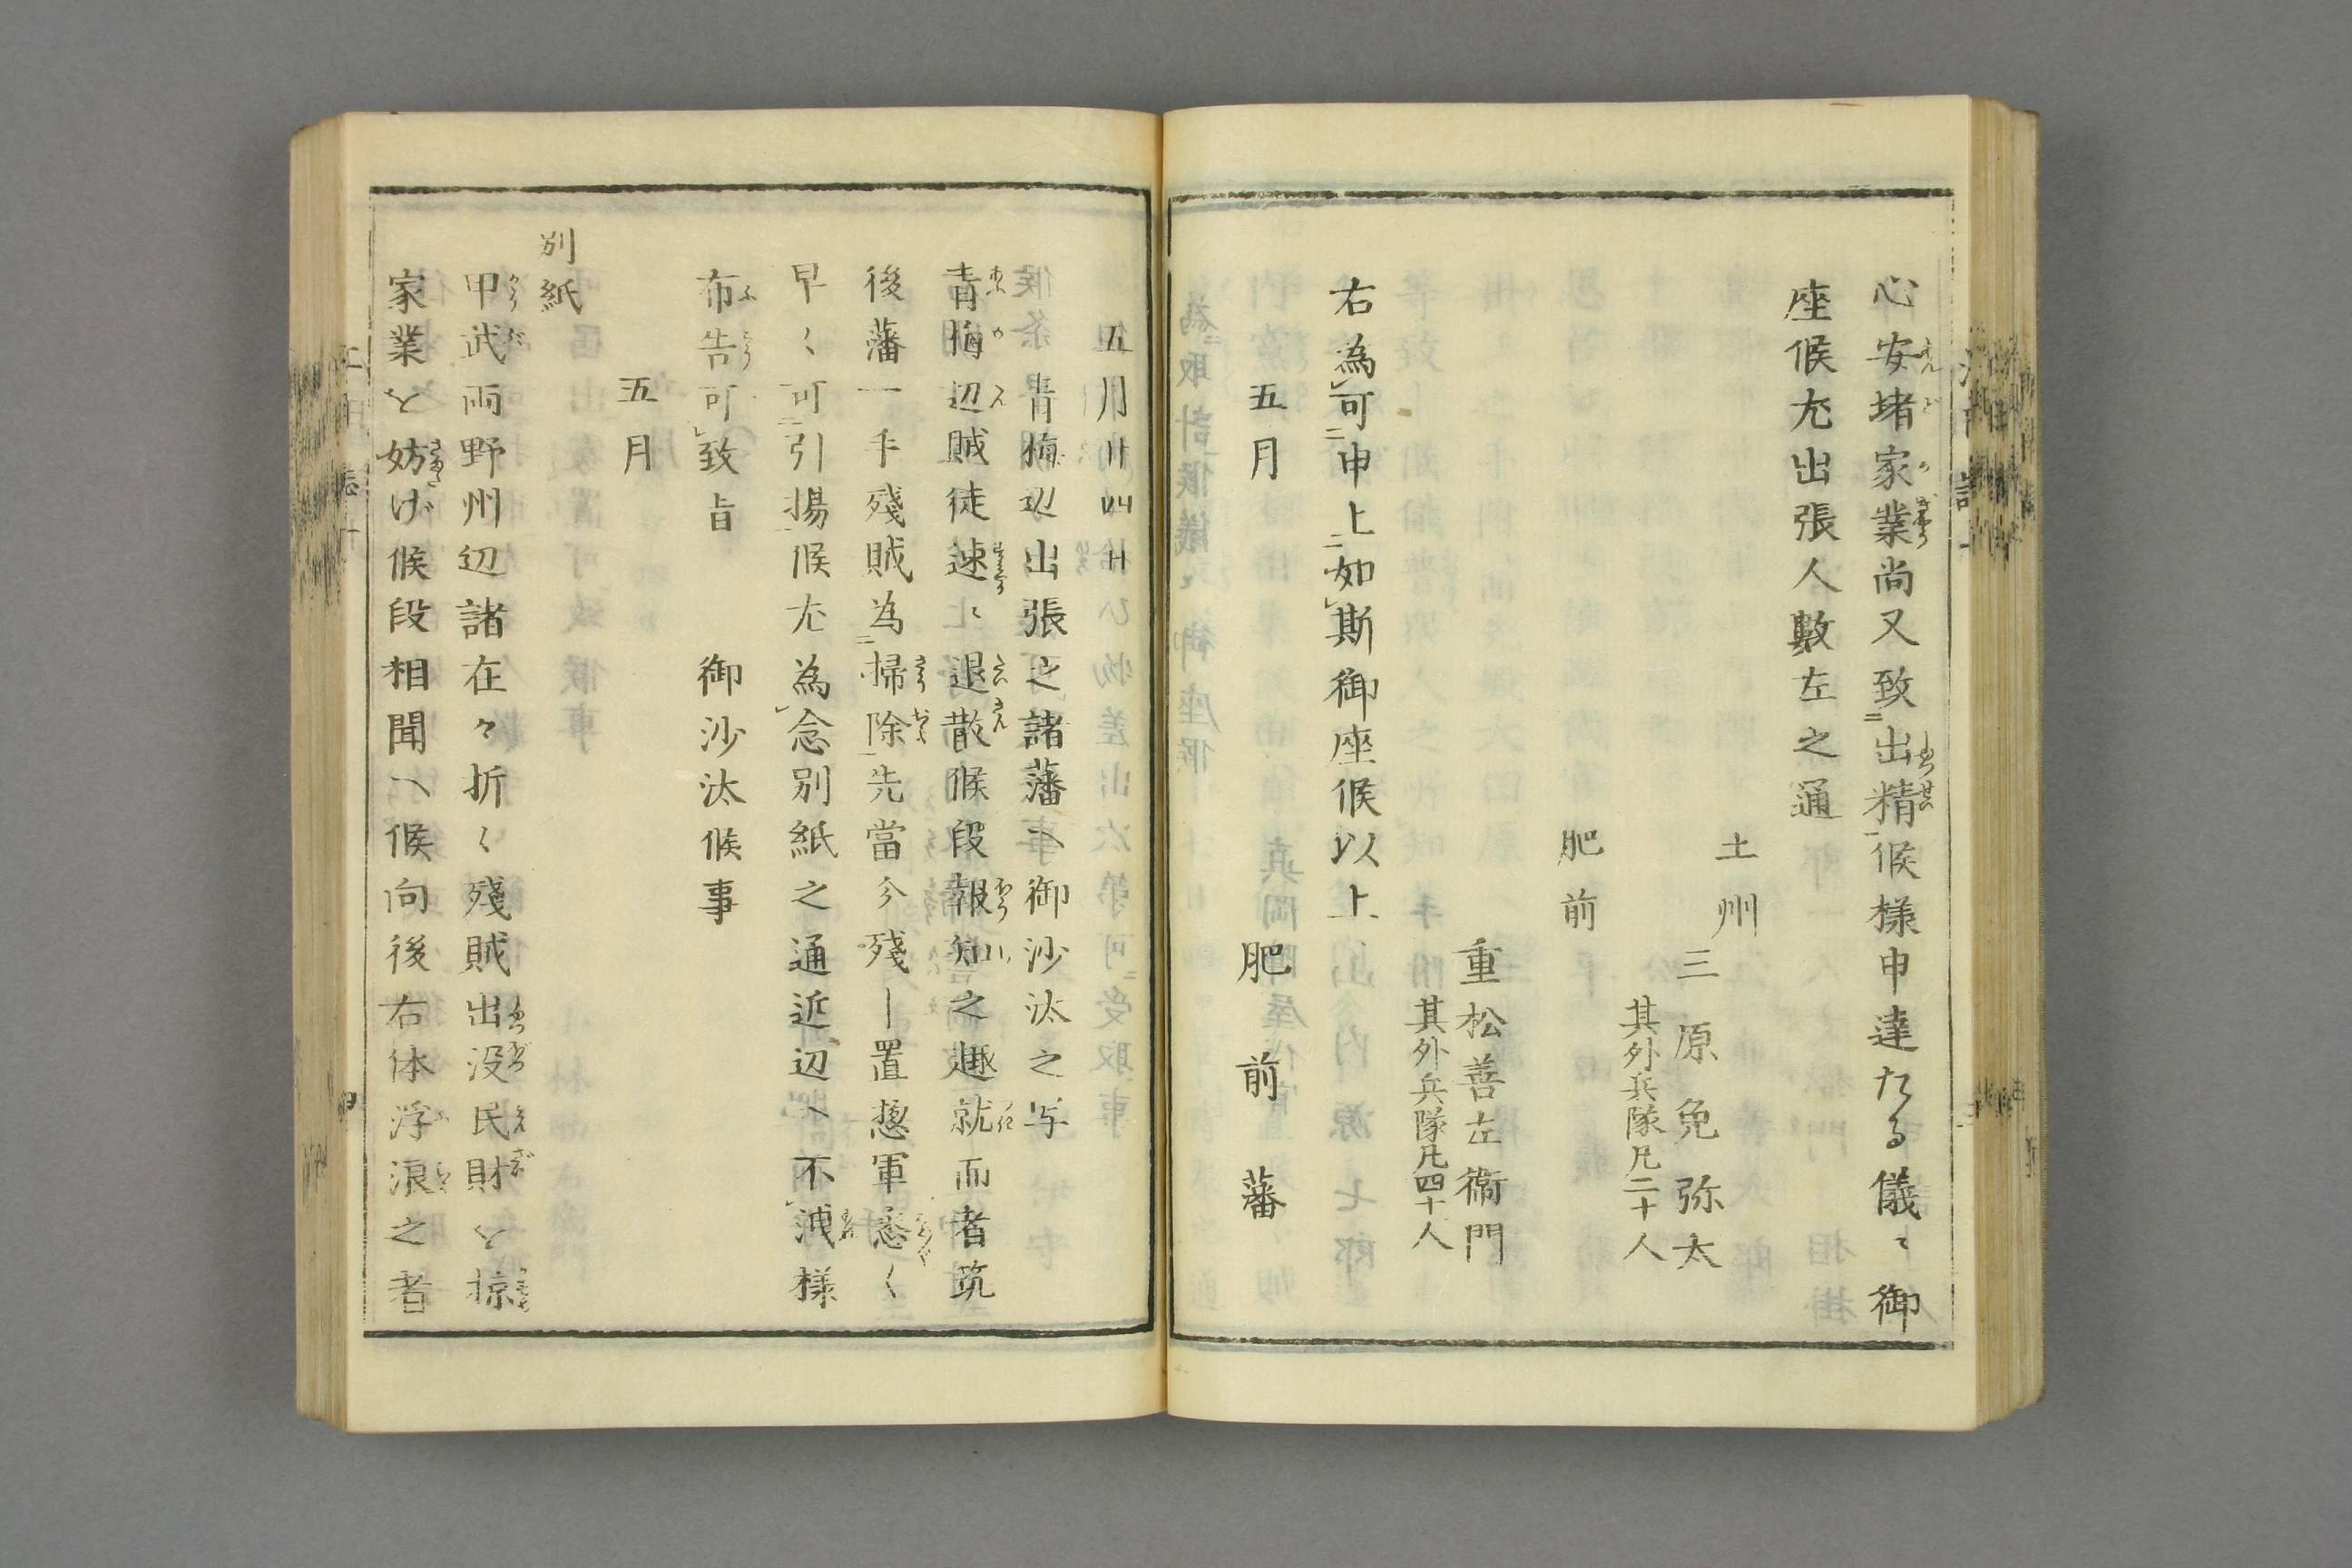 心安堵家業尚又致出精候様申達たる儀ニ御
座候尤出張人數左之通
土州
三原兔弥太
其外兵隊凡二十人
肥前
重松善左衞門
其外兵隊凡四十人
右為可申上如斯御座候以上
五月
肥前藩
五月廿四日
青梅辺出張之諸藩へ御沙汰之写
青梅辺賊徒速ニ退散候段報知之趣就而者筑
後藩一手殘賊為掃除先當分殘し置惣軍悉く
早く可引揚候尤為念別紙之通近辺へ不洩様
布告可致旨 御沙汰候事
五月
別紙
甲武両野州辺諸在々折く殘賊出没民財を掠
家業を妨げ候段相聞へ候向後右体浮浪之者